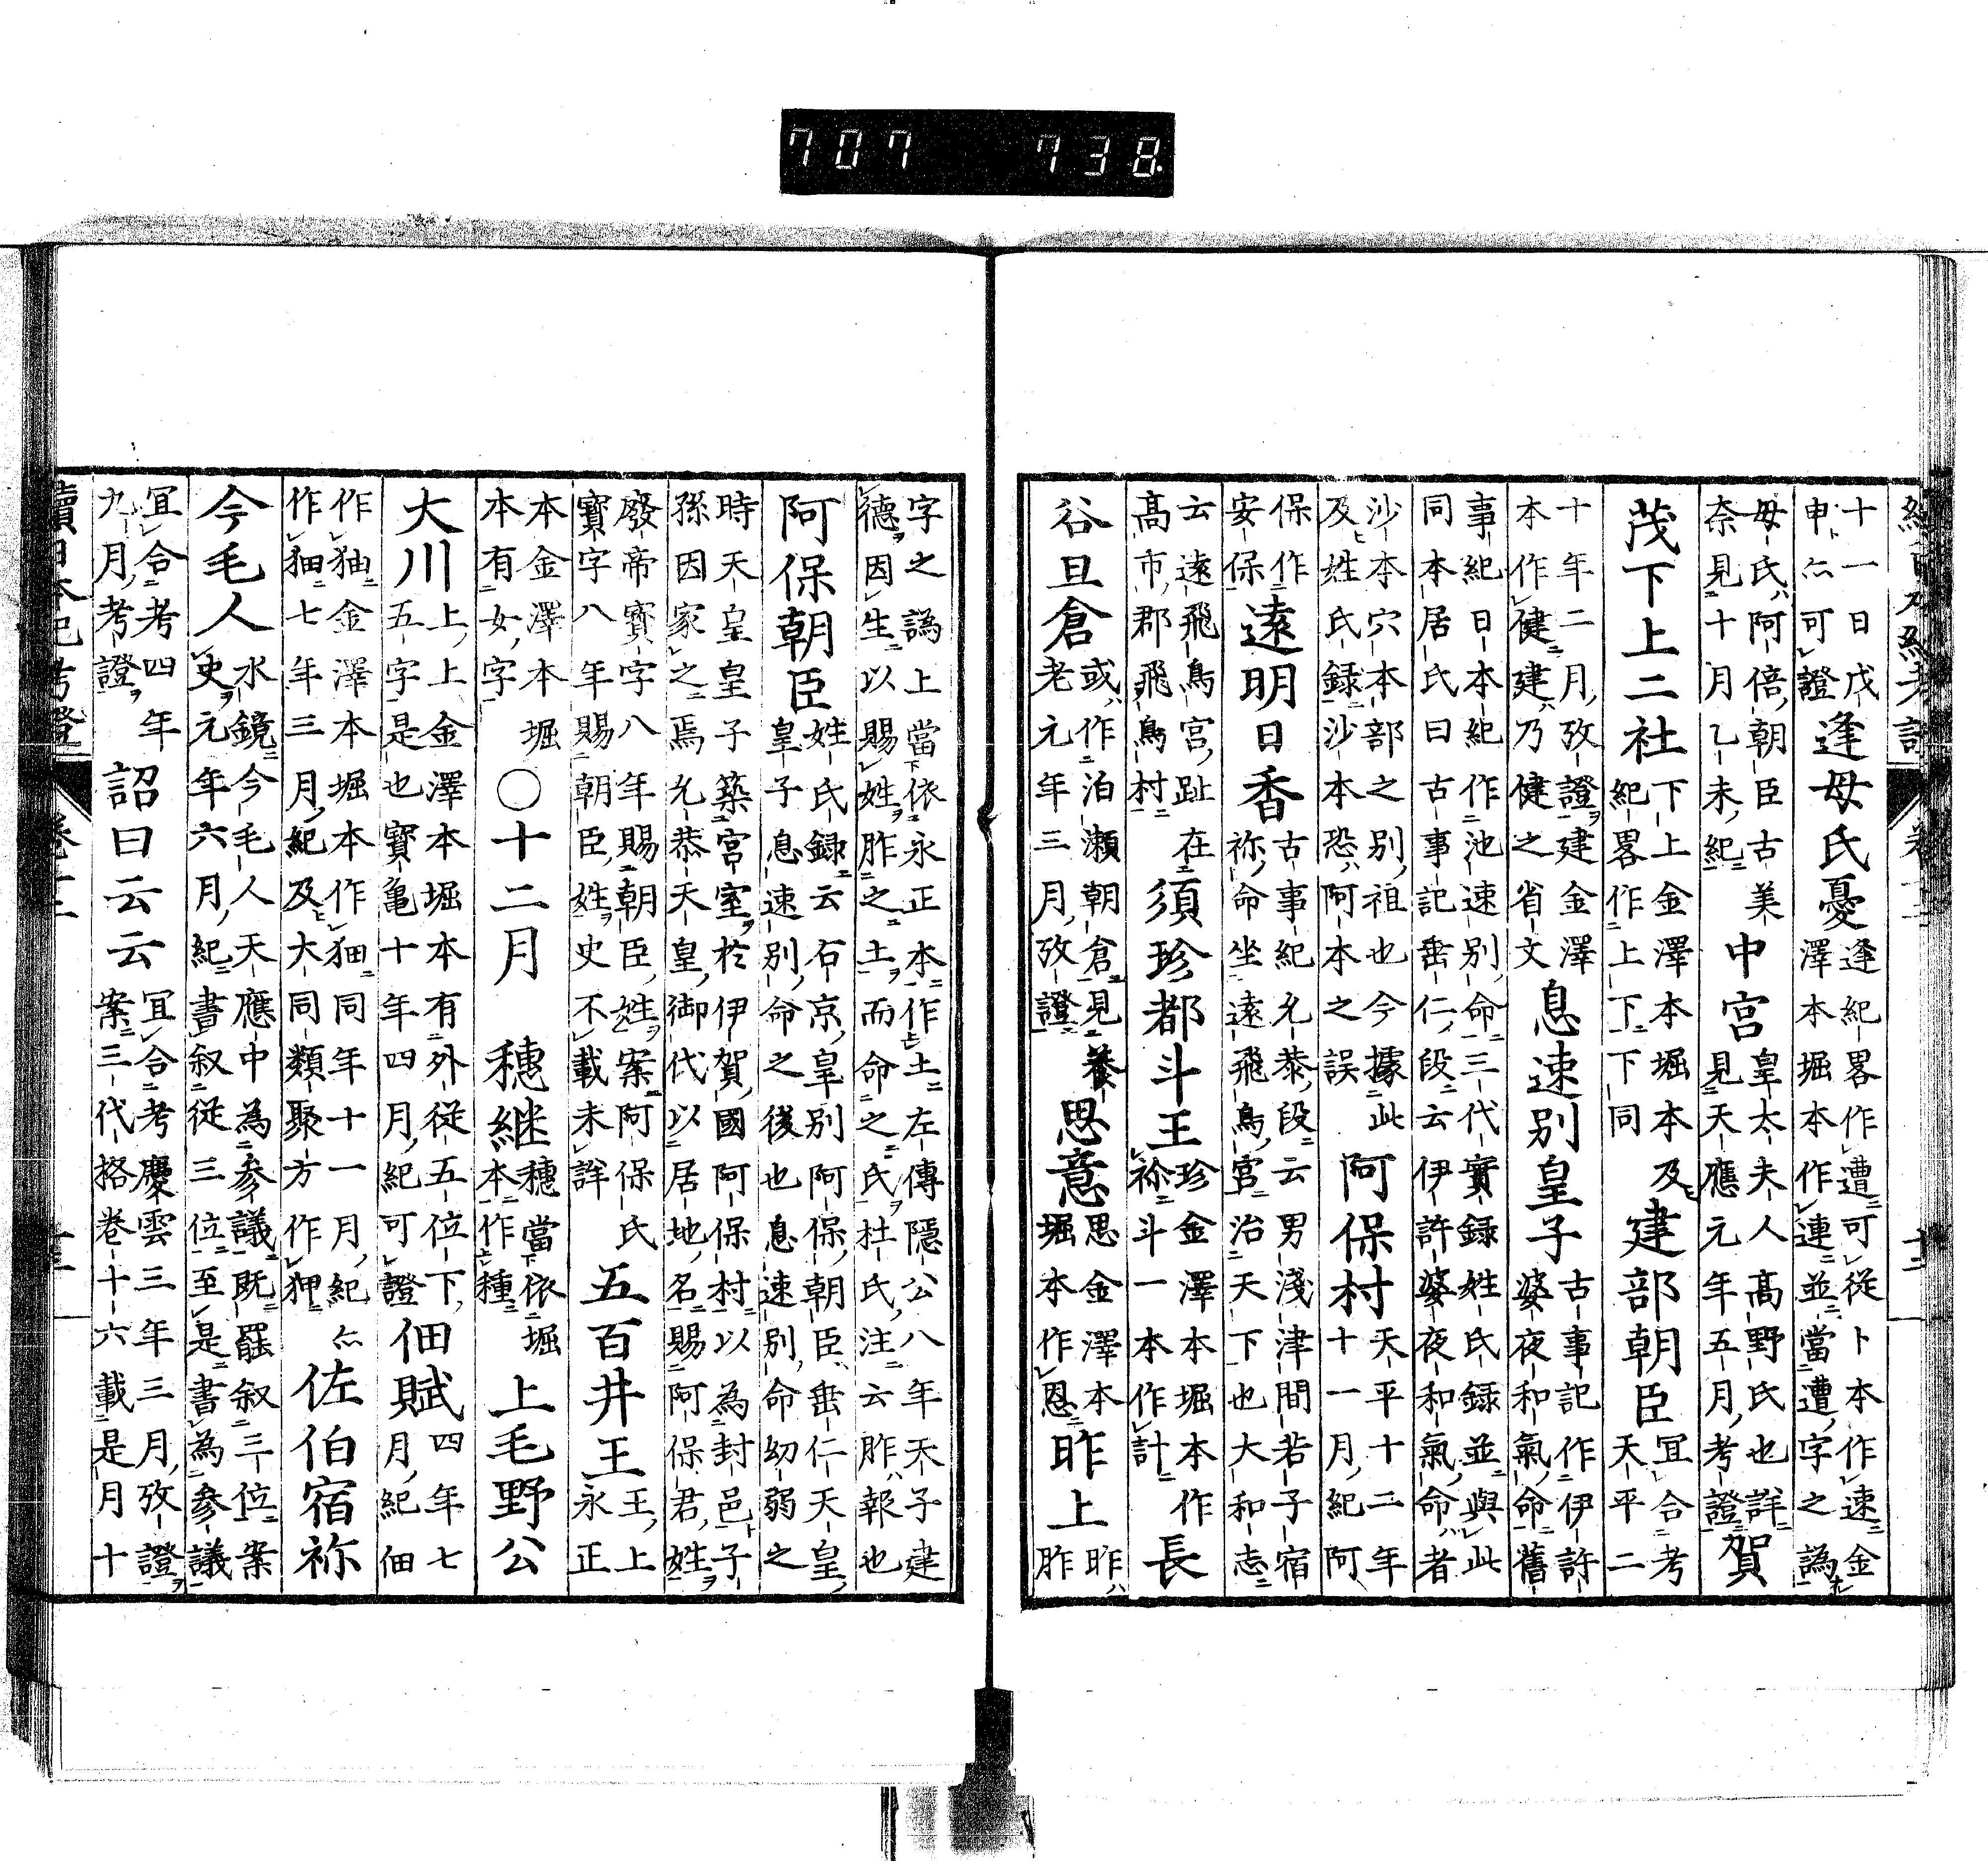 707 738
十一日戊申亦可證逢母氏憂逢紀畧作遭可從卜本作速金澤本堀本作連並當遭字之譌
母氏阿倍朝臣古美奈見十月乙未紀中宮皇太夫人髙野氏也詳見天應元年五月考證賀
茂下上二社下上金澤本堀本及紀畧作上下下同建部朝臣冝合考天平二
十年二月攷證建金澤本作健建乃健之省文息速別皇子古事記作伊許婆夜和氣命舊
事紀日本紀作池速別命三代實録姓氏録並與此同本居氏曰古事記垂仁段云伊許婆夜和氣命者
沙本穴本部之別祖也今據此及姓氏録沙本恐阿本之誤阿保村天平十二年十一月紀阿
保作安保遠明日香古事紀允恭段云男淺津間若子宿祢命坐遠飛鳥宮治天下也大和志
云遠飛鳥宮趾在髙市郡飛鳥村須珍都斗王珍金澤本堀本作斗一本作計長
谷旦倉或作泊瀬朝倉見養老元年三月攷證思意思金澤本堀本作恩昨上昨胙
字之譌上當依永正本作土左傳隱公八年天子建德因生以賜姓胙之土而命之氏杜氏注云胙報也
阿保朝臣姓氏録云石京皇別阿保朝臣垂仁天皇皇子息速別命之後也息速別命幼弱之
時天皇皇子築宮室於伊賀國阿保村以為封邑子孫因家之焉允恭天皇御代以居地名賜阿保君姓
廢帝寶字八年賜朝臣姓案阿保氏寶字八年賜朝臣姓史不載未詳五百井王王上永正
本金澤本堀本有女字〇十二月穗継穗當依堀本作種上毛野公
大川上上金澤本堀本有外從五位下五字是也寳亀十年四月紀可證佃賦四年七月紀佃
作㹨金澤本堀本作㹨同年十一月紀亦作㹨七年三月紀及大同類聚方作狎佐伯宿祢
今毛人水鏡今毛人天應中為參議既罷叙三位案史元年六月紀書叙從三位至是書為參議
冝合考四年九月考證詔曰云云冝合考慶雲三年三月攷證案三代格卷十六載是月十
續日本紀考證 卷十二